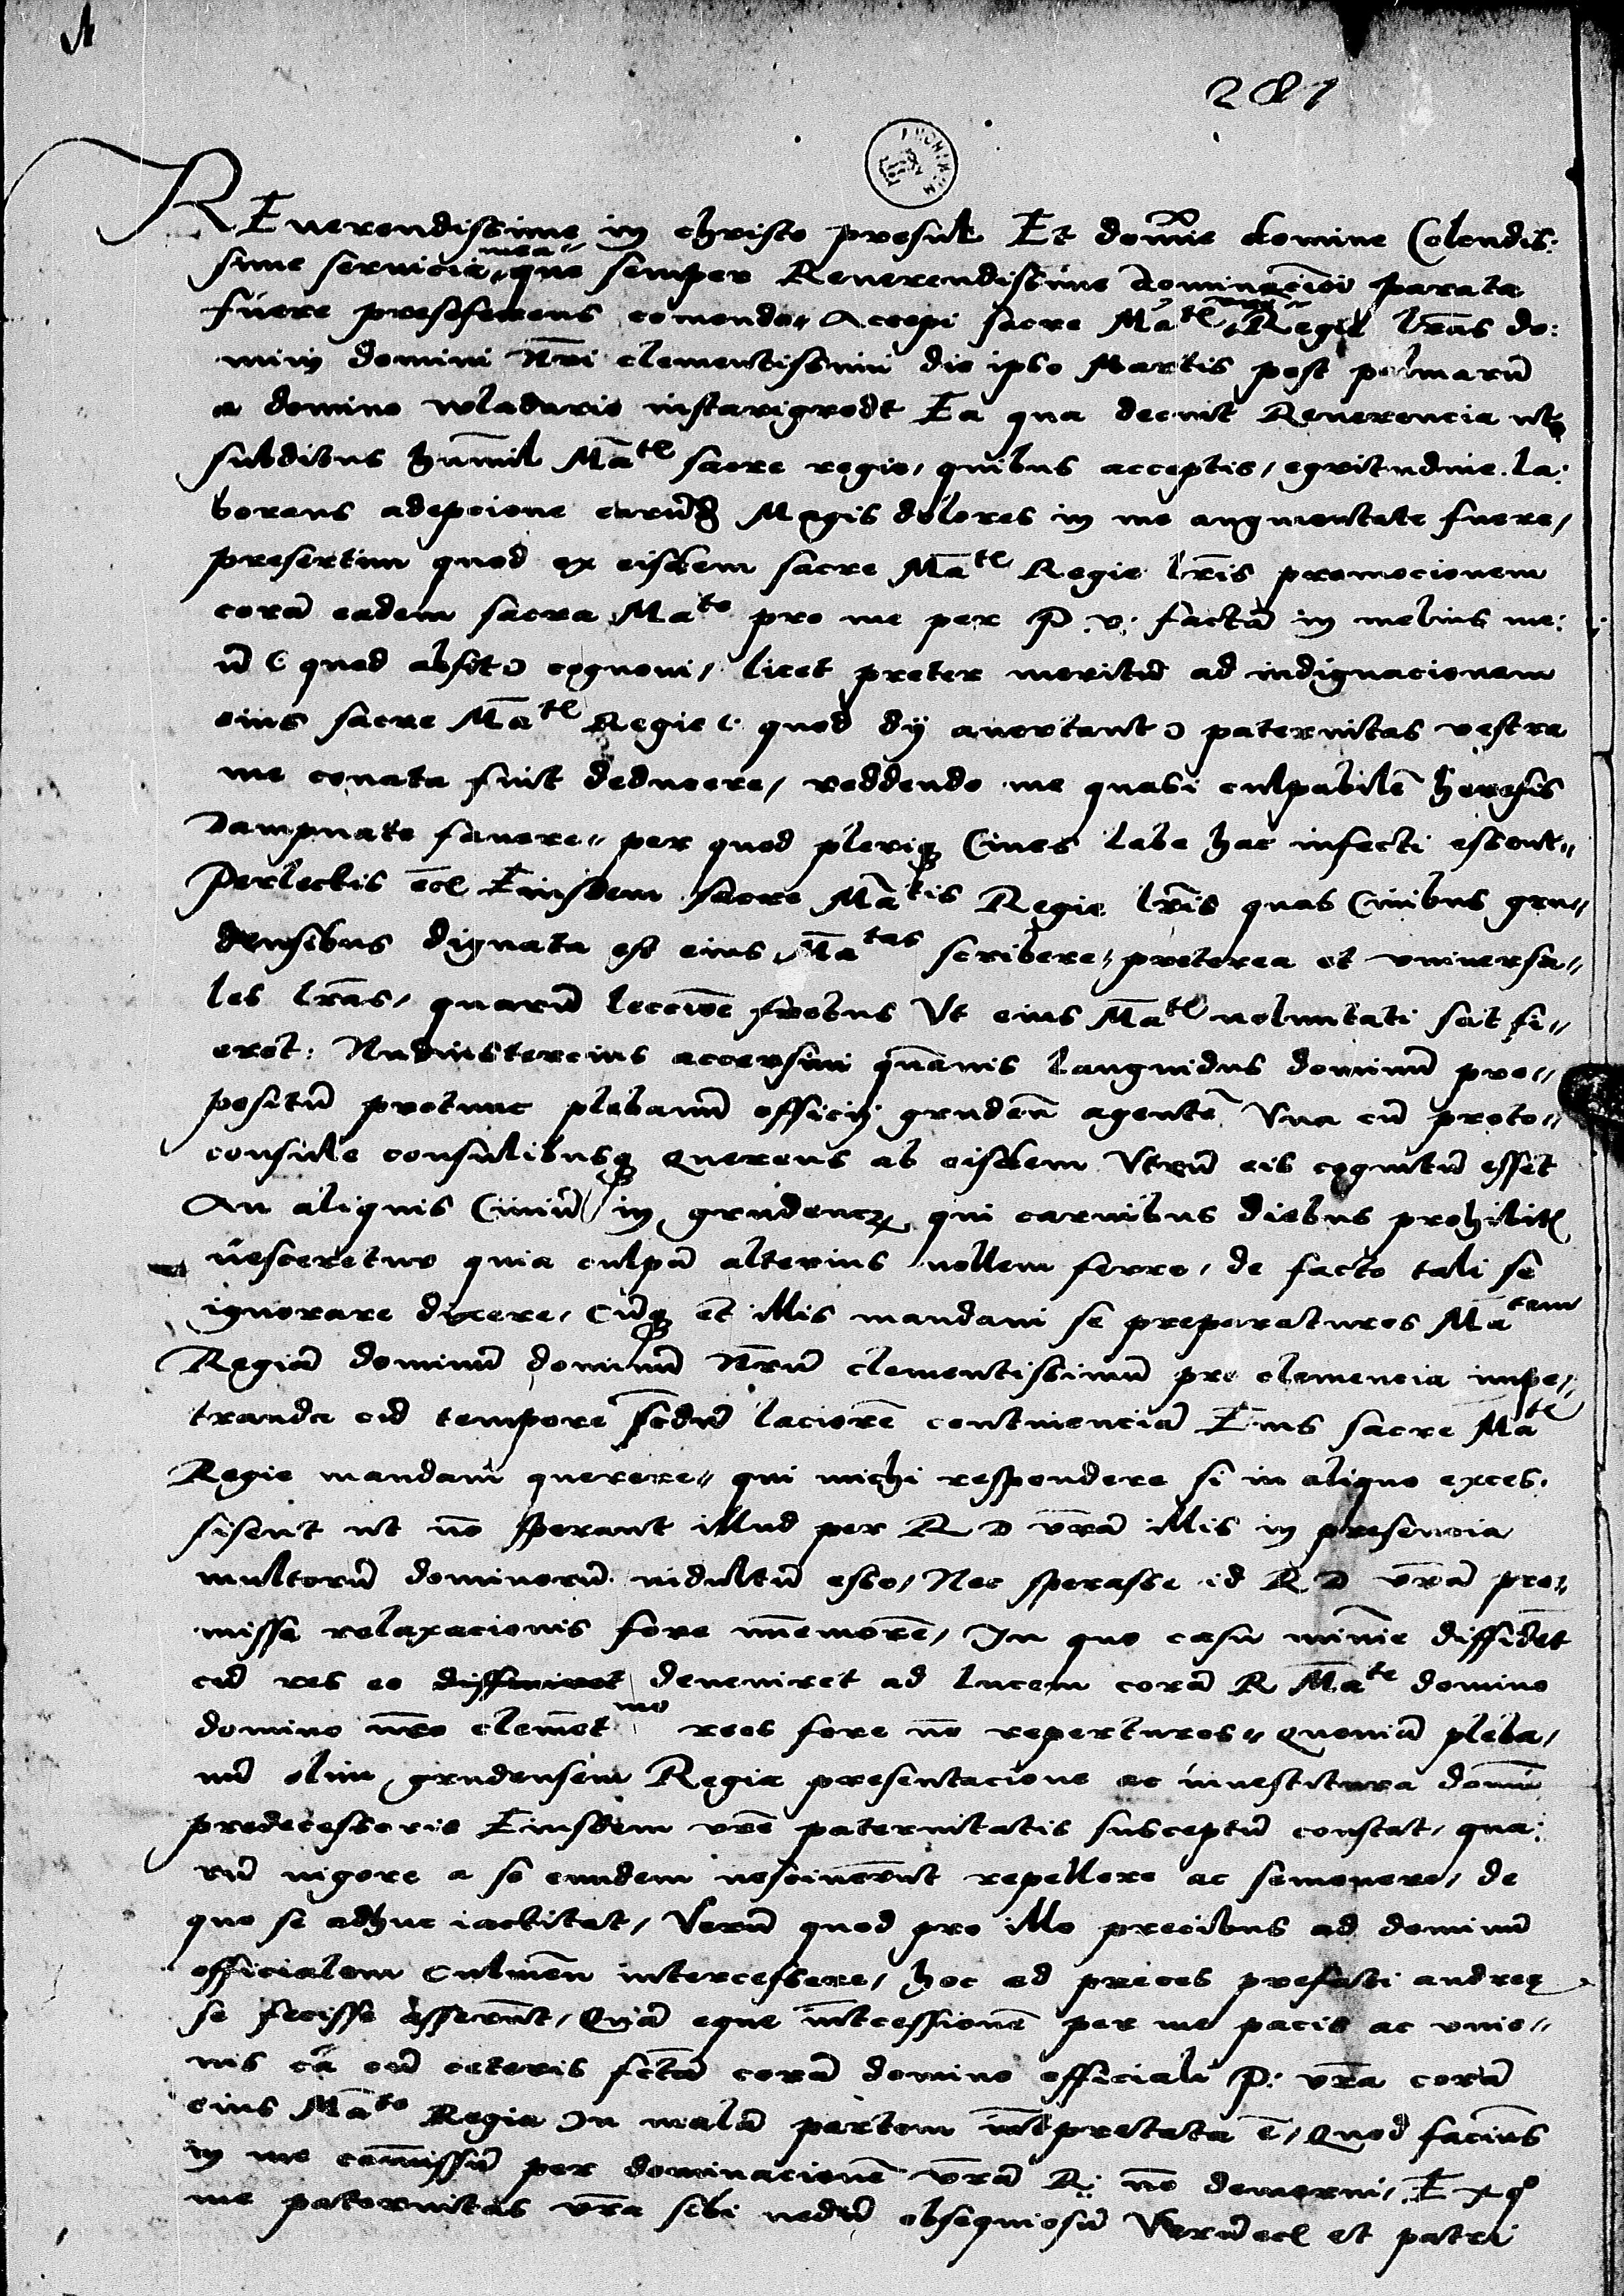 281
REuerendissime in christo presul Et domie domine Colendis:
sime seruicia mea que semper Reuerendissime dominacioi parata
fuere preseferens comendo Accepi sacre Mate Regie lras do:
mini domini nri clementissimi die ipso Martis post palmarū
a domino wladario instarigrodt Ea qua decuit Reuerencia uti
subditus humil Mate sacre regie / quibus acceptis / egritudine la:
borans adepcione earūd Magis dolores in me augmentate fuere /
presertim quod ex eisdem sacre Mate Regie lris promocionem
corā eadem sacra Mate pro me per P. v. factā in melius me:
ū ( quod absit ) cognoui / licet preter meritū ad indignacionem
eius sacre Mate Regie ( quod dij auertant ) paternitas vestra
me conata fuit deducere / reddendo me quasi culpabilē heresis
dampnate fauere per quod pleriq Ciues labe hac infecti essent
Perlectis ecl Eiusdem sacre Matis Regie lris quas Ciuibus gru
densibus dignata est eius Matas scribere preterea et vniuersa
les lras / quarū leccioe fretus Vt eius Mate uoluntati sat fi
eret: Nudiustercius accersiui quāuis languidus dominū pre
positū protunc plebanū officij grudeñ agentē Vna cū proto
consule consulibusq Querens ab eisdem Vtrū eis cognitū esset
An aliquis Ciuiū in grudencz qui carnibus diebus prohibit
uesceretur quia culpā alterius nollem ferre / de facto tali se
ignorare dixere / Cūq et illis mandaui se preparaturos Matem
Regiā dominū dominū nrūm clementissimū pro clemencia impe
tranda ad tempore sedū laciorē continenciā Eius sacre Mate
Regie mandaui querere qui michi respondere si in aliquo exces
sisent ut no sperant illud per R D vrā illis in presencia
multorū dominorū indultū esse / Nec sperasse id R D vrā pre
missa relaxacionis fore imemorē / In quo casu minie diffidet
cū res eo deueniret ad lucem corā R Mate domino
domino nro clemetmo reos fore no reperturos Quoniā pleba
nū olim grudensem Regia presentacione ac inuestitura domi
predecessoris Eiusdem vre paternitatis susceptū constat / qua:
rū uigore a se eundem nesciuerut repellere ac semouere / de
quo se adhuc iactitat / Verū quod pro illo precibus ad dominū
officialem Culmeñ intercessere / hoc ad preces prefati andree
se fecisse asserūt / Quā eque intcessionē per me pacis ac vnio
nis cā cū ceteris fctā corā domino officiali P: vra corā
eius Mate Regia In malā partem intpretata ē / Quod facius
in me comissū per dominacionē vrā R: no demerui / Ex quo
me paternitas vra sibi nedū obsequiosū Verū ecl et patri